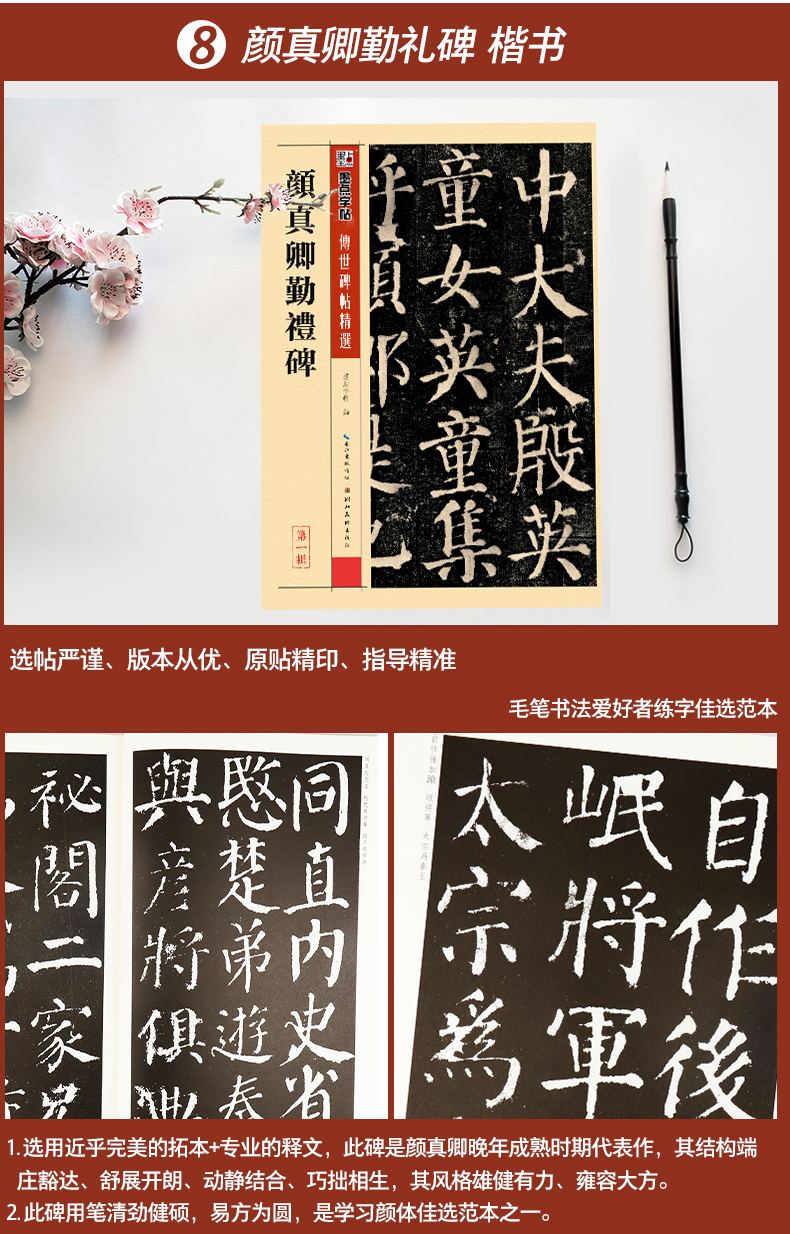 8 颜真卿勤礼碑 楷书
顔真卿勤禮碑
墨点字帖
傳世碑帖精選
第一辑
中大夫殷英
童女英童集
呼頂郎是也
选帖严谨、版本从优、原贴精印、指导精准
毛笔书法爱好者练字佳选范本
同直内史省
愍楚弟遊秦
與彦將俱
祕閣二家
自作後
岷將軍
太宗爲
自作後加踰
岷將軍 太宗爲秦王
1.选用近乎完美的拓本+专业的释文，此碑是颜真卿晚年成熟时期代表作，其结构端
庄豁达、舒展开朗、动静结合、巧拙相生，其风格雄健有力、雍容大方。
2.此碑用笔清劲健硕，易方为圆，是学习颜体佳选范本之一。